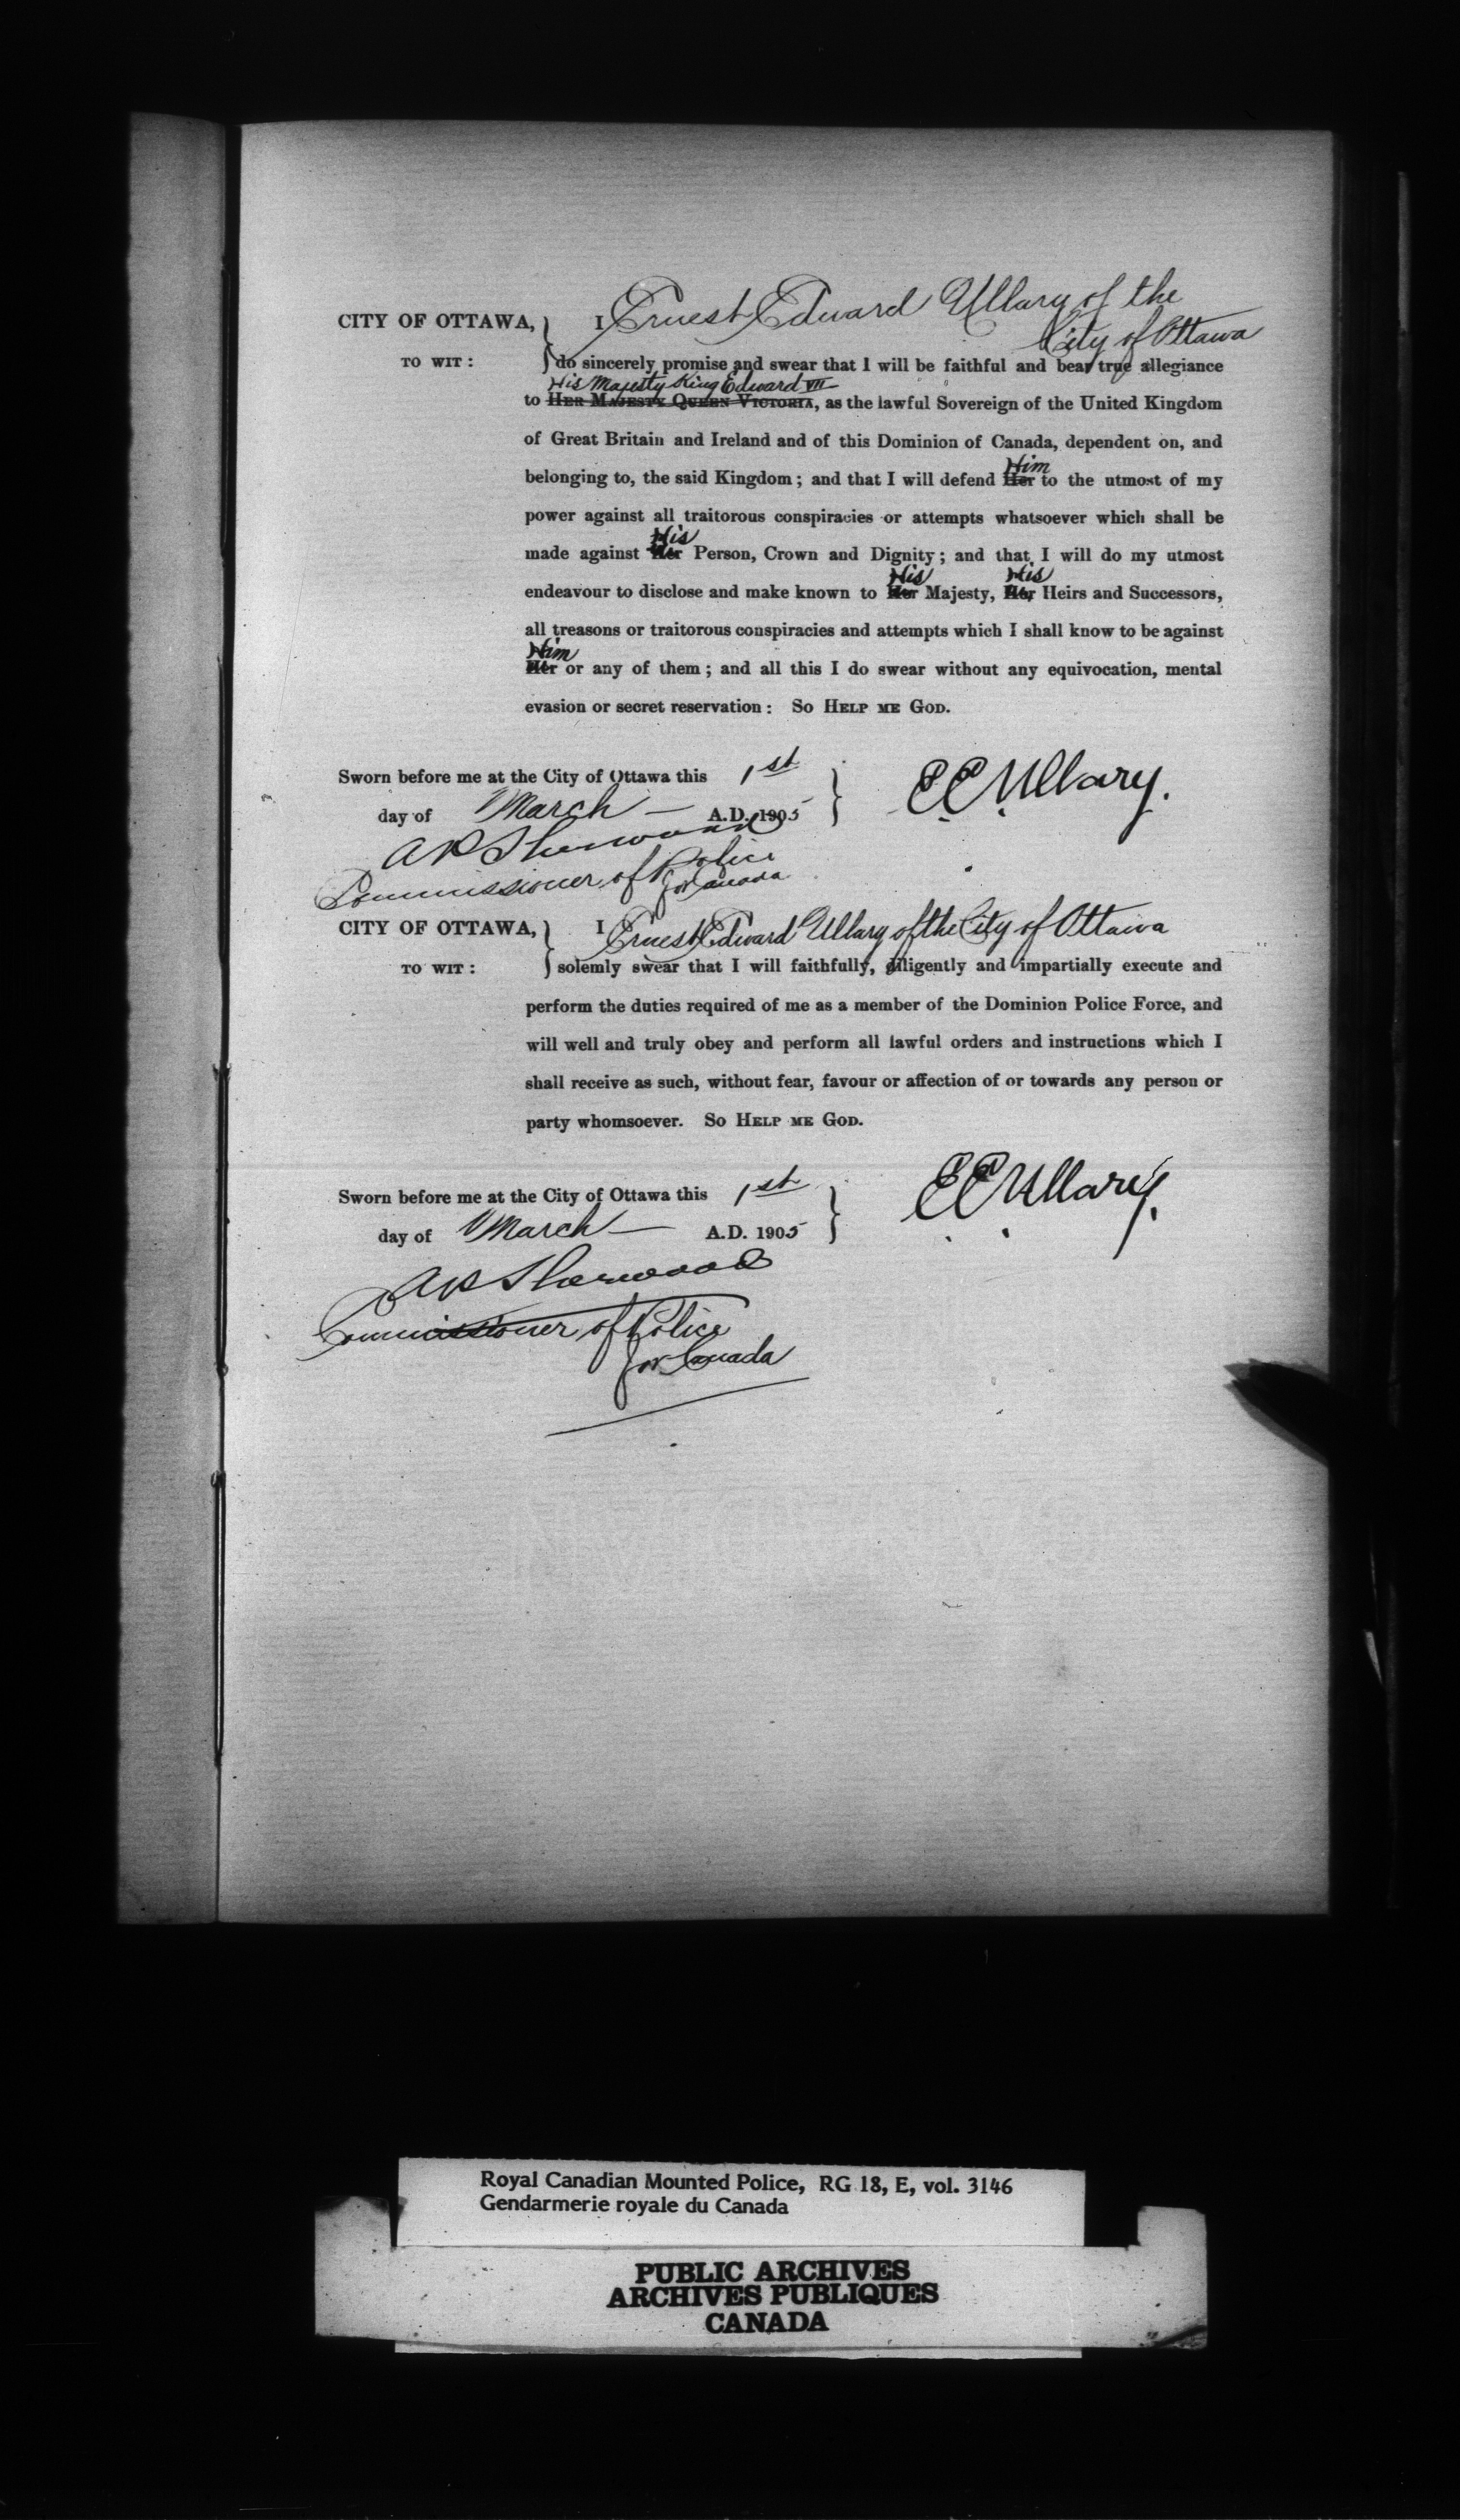 CITY OF OTTAWA, I Ernest Edward Ullary of the
City of Ottawa
TO WIT : do sincerely promise and swear that I will be faithful and bear true allegiance
His Majesty King Edward VII
to HER MAJESTY QUEEN VICTORIA, as the lawful Sovereign of the United Kingdom
of Great Britain and Ireland and of this Dominion of Canada, dependent on, and
Him
belonging to, the said Kingdom ; and that I will defend Her to the utmost of my
power against all traitorous conspiracies or attempts whatsoever which shall be
His
made against Her Person, Crown and Dignity ; and that I will do my utmost
His His
endeavour to disclose and make known to Her Majesty, Her Heirs and Successors,
all treasons or traitorous conspiracies and attempts which I shall know to be against
Him
Her or any of them ; and all this I do swear without any equivocation, mental
evasion or secret reservation : SO HELP ME GOD.
Sworn before me at the City of Ottawa this 1st
day of March A.D. 1905
E E Ullary.
A P Sherwood
Commissioner of Police
for Canada
CITY OF OTTAWA, I Ernest Edward Ullary of the City of Ottawa
TO WIT : solemly swear that I will faithfully, diligently and impartially execute and
perform the duties required of me as a member of the Dominion Police Force, and
will well and truly obey and perform all lawful orders and instructions which I
shall receive as such, without fear, favour or affection of or towards any person or
party whomsoever. SO HELP ME GOD.
Sworn before me at the City of Ottawa this 1st
day of March A.D. 1905
E E Ullary.
A P Sherwood
Commissioner of Police
for Canada
Royal Canadian Mounted Police, RG 18, E, vol. 3146
Gendarmerie royale du Canada
PUBLIC ARCHIVES
ARCHIVES PUBLIQUES
CANADA